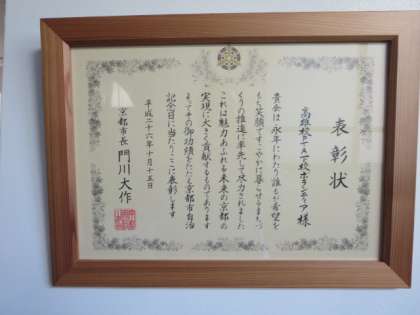 表彰状
高雄校PTA下校ボランティア様
貴会は永年にわたり誰もが希望を
もち笑顔ですこやかに暮らせるまちづ
くりの推進に率先して尽力されました
これは魅力あふれる未来の京都の
実現に大きく貢献するものであります
よってその御功績をたたえ京都市自治
記念日に当たりここに表彰します
平成二十六年十月十五日
京都市長 門川大作